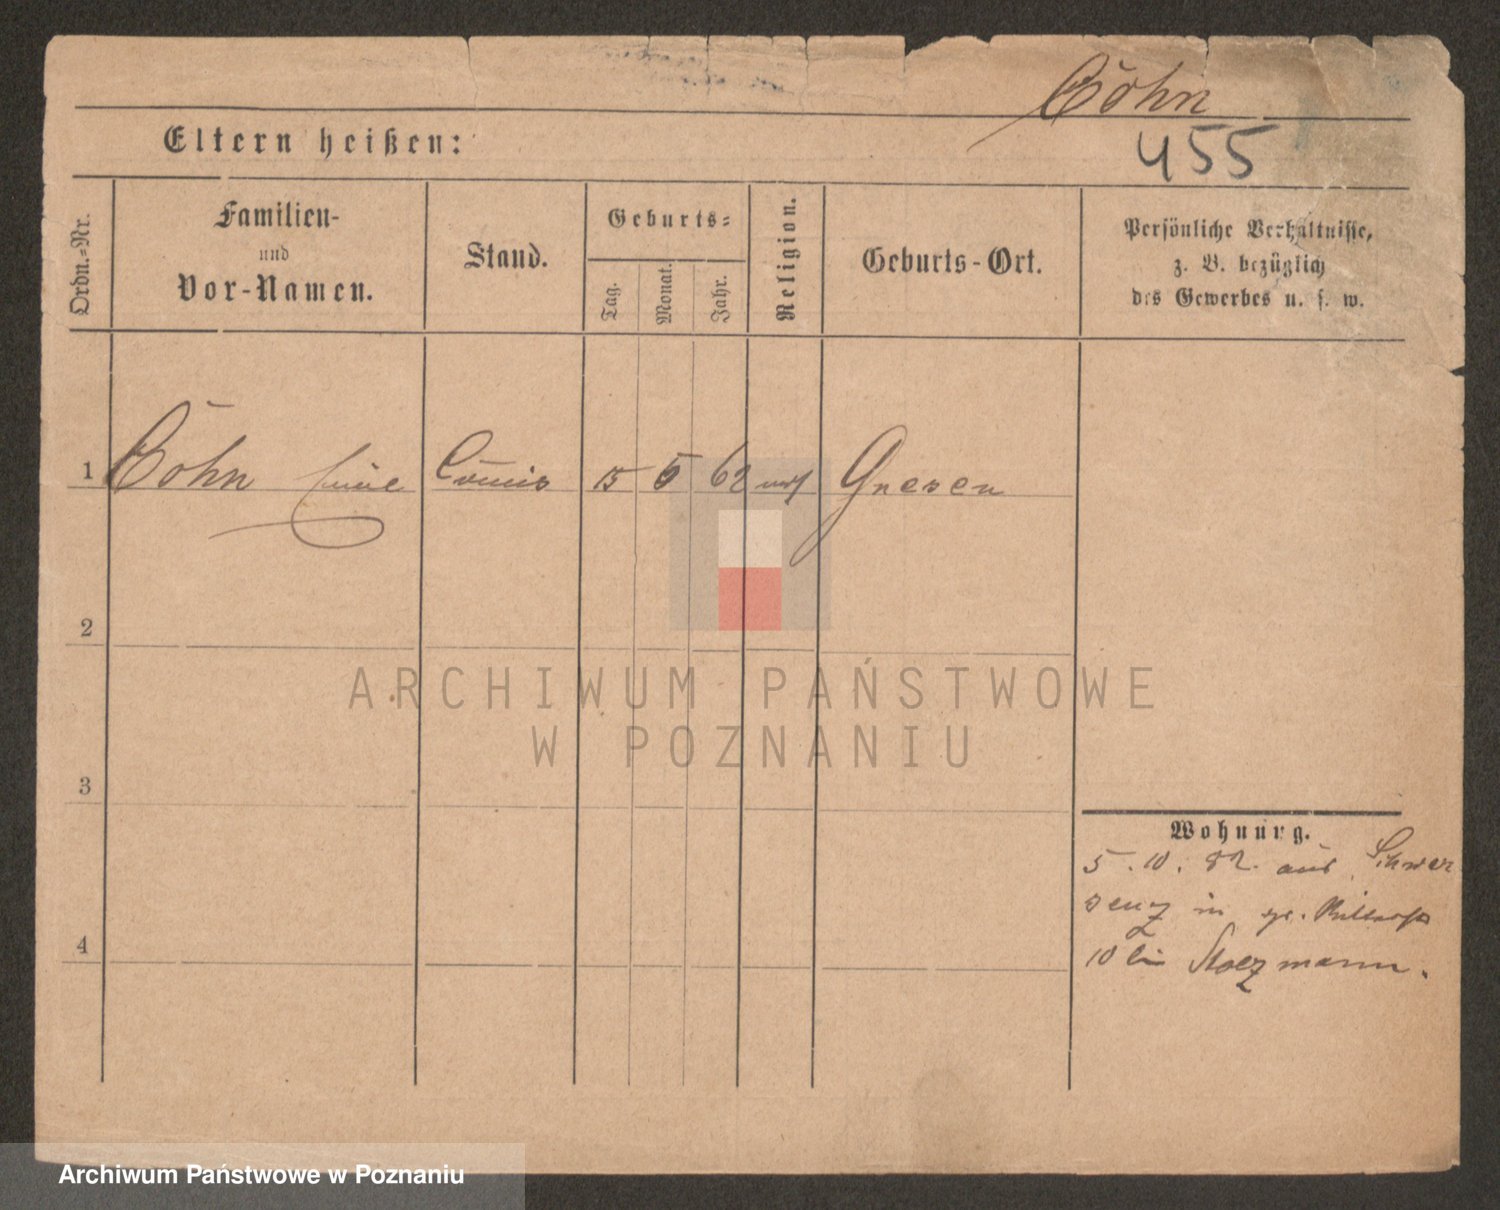 Cöhn
Eltern heißen:
455
Ordn.-Nr.
Familien-
und
Vor-Namen.
Stand.
Geburts-
Tag.
Monat.
Jahr.
Religion.
Geburts-Ort.
Persönliche Verhältnisse,
z. B. bezüglich
des Gewerbes u. s. w.
1 Cöhn 15 5 62 Gnesen
2
3
4
Wohnung.
5. 10. 82. aus Schwer
senz in gr. Ritterst
10 bei Stolzmann.
ARCHIWUM PAŃSTWOWE
W POZNANIU
Archiwum Państwowe w Poznaniu